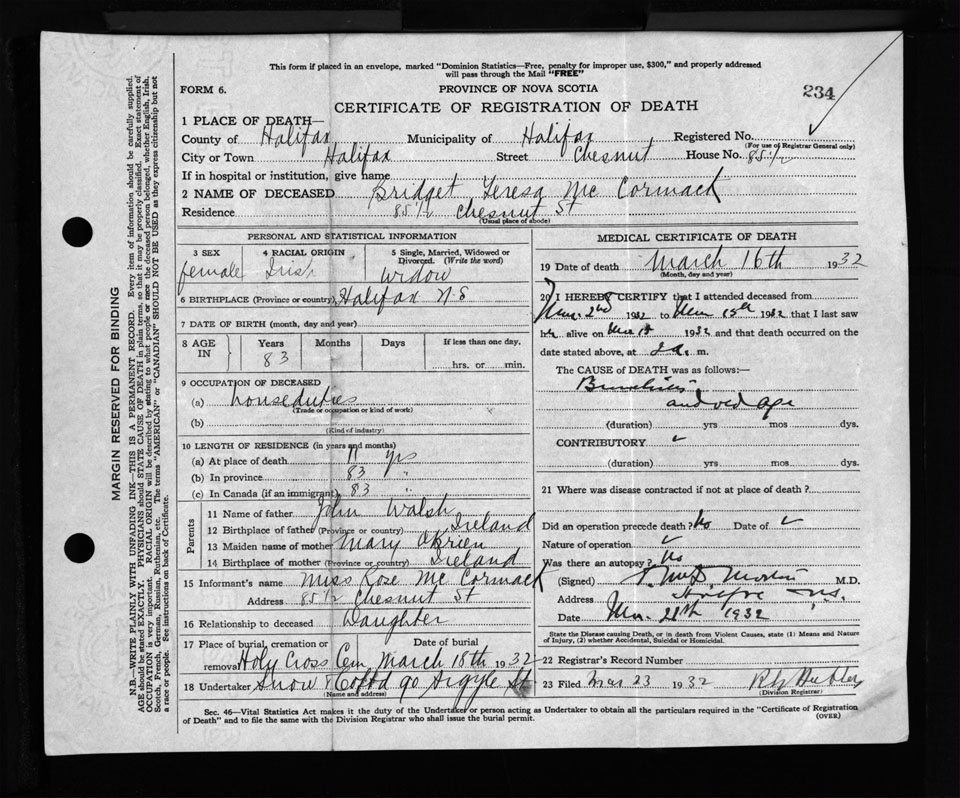 This form if placed in an envelope, marked "Dominion Statistics—Free, penalty for improper use, $300," and properly addressed
will pass through the Mail "FREE"
FORM 6.
PROVINCE OF NOVA SCOTIA
234
CERTIFICATE OF REGISTRATION OF DEATH
1 PLACE OF DEATH—
County of Halifax Municipality of Halifax Registered No.
(For use of Registrar General only)
City or Town Halifax Street Chesnut House No. 85½
If in hospital or institution, give name
2 NAME OF DECEASED Bridget Teresa Mc Cormack
Residence 85½ Chesnut St
(Usual place of abode)
PERSONAL AND STATISTICAL INFORMATION
3 SEX 4 RACIAL ORIGIN 5 Single, Married, Widowed or
Divorced. (Write the word)
female Irish Widow
6 BIRTHPLACE (Province or country) Halifax N S
7 DATE OF BIRTH (month, day and year)
8 AGE IN Years Months Days If less than one day,
83 hrs. or min.
9 OCCUPATION OF DECEASED
(a) houseduties
(Trade or occupation or kind of work)
(b)
(Kind of industry)
10 LENGTH OF RESIDENCE (in years and months)
(a) At place of death 11 yrs
(b) In province 83 "
(c) In Canada (if an immigrant) 83 "
Parents
11 Name of father John Walsh
12 Birthplace of father (Province or country) Ireland
13 Maiden name of mother Mary O'Brien
14 Birthplace of mother (Province or country) Ireland
15 Informant's name Miss Rose Mc Cormack
Address 85½ Chesnut St
16 Relationship to deceased Daughter
17 Place of burial, cremation or removal Date of burial
Holy Cross Cem March 18th 1932
18 Undertaker Snow & Co Ltd 90 Argyle St
(Name and address)
MEDICAL CERTIFICATE OF DEATH
19 Date of death March 16th 1932
(Month, day and year)
20 I HEREBY CERTIFY that I attended deceased from
Mar. 2nd 1932 to Mar 15th 1932 that I last saw
her alive on Mar 15 1932 and that death occurred on the
date stated above, at 2 a. m.
The CAUSE of DEATH was as follows:—
Bronchitis
and old age
(duration) yrs mos dys.
CONTRIBUTORY
(duration) yrs mos dys.
21 Where was disease contracted if not at place of death?
Did an operation precede death? No Date of
Nature of operation
Was there an autopsy? No
(Signed) M.D.
Address Halifax N.S.
Date Mar. 21th 1932
State the Disease causing Death, or in death from Violent Causes, state (1) Means and Nature
of Injury, (2) whether Accidental, Suicidal or Homicidal.
22 Registrar's Record Number
23 Filed Mar 23 1932
(Division Registrar)
Sec. 46—Vital Statistics Act makes it the duty of the Undertaker or person acting as Undertaker to obtain all the particulars required in the "Certificate of Registration
of Death" and to file the same with the Division Registrar who shall issue the burial permit.
(OVER)
MARGIN RESERVED FOR BINDING
N.B.—WRITE PLAINLY WITH UNFADING INK—THIS IS A PERMANENT RECORD. Every item of information should be carefully supplied.
AGE should be stated EXACTLY. PHYSICIANS should STATE CAUSE OF DEATH in plain terms, so that it may be properly classified. Exact statement of
OCCUPATION is very important. RACIAL ORIGIN will be described by stating to what people or race the deceased person belonged, whether English, Irish,
Scotch, French, German, Russian, Ruthenian, etc. The terms "AMERICAN" or "CANADIAN" SHOULD NOT BE USED as they express citizenship but not
a race or people. See instructions on back of Certificate.